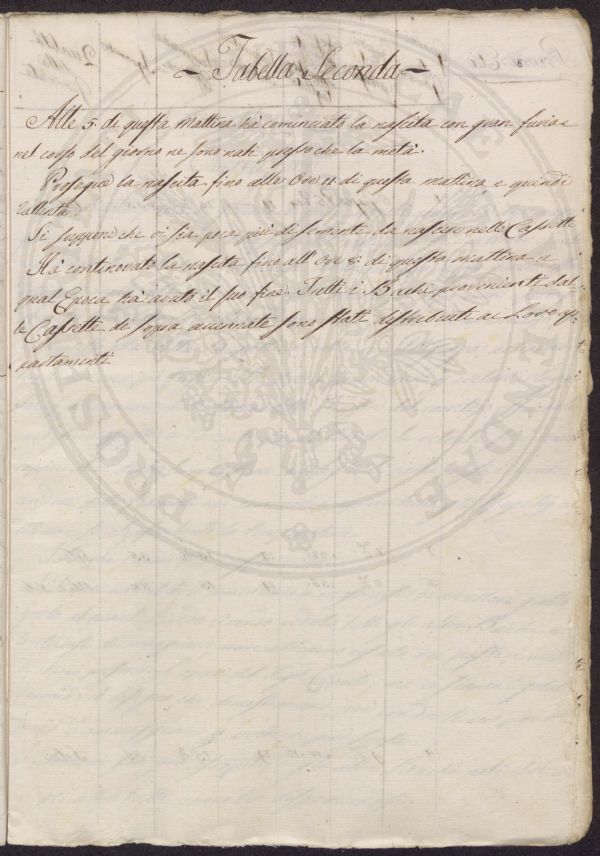 8
Tabella Seconda
Alle 5. di questa mattina ha cominciato la nascita con gran furia e
nel corso del giorno ne sono nati presso che la metà.
Prosegue la nascita fino alle Ore 11 di questa mattina e quindi
rallenta
Si suppone che vi sia poca più di semente da nascere nelle Cassette
Hà continovato la nascita fino all'ore 8: di questa mattina e
qual Epoca hà avuto il suo fine. Tutti i Bachi provenienti dal-
le Cassette di sopra accennate sono stati distribuiti ai Loro
-partamenti
PROSPE AVGENDAE